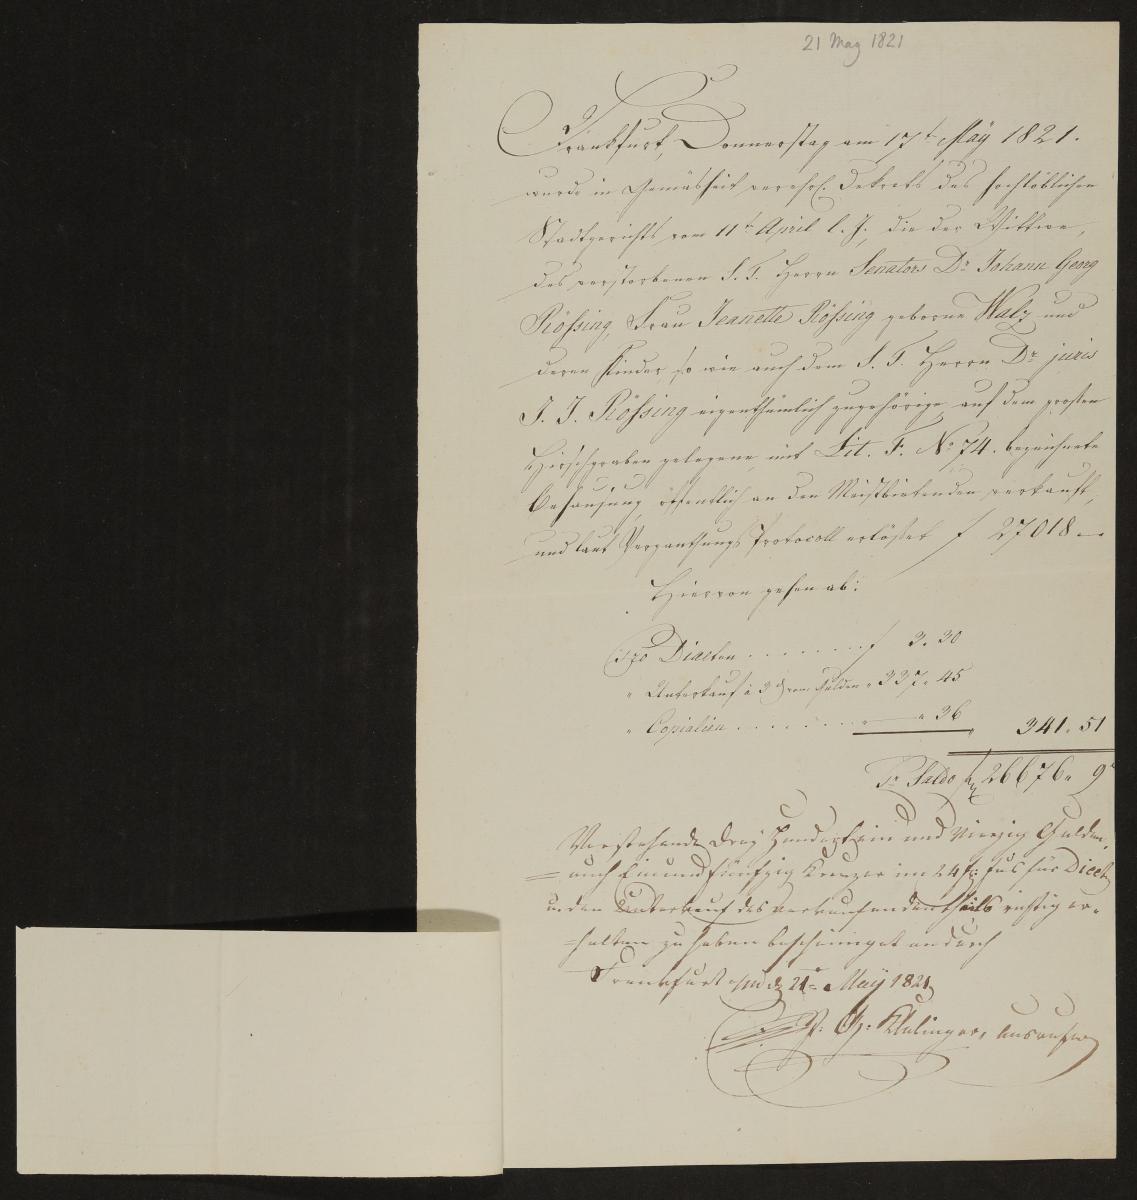 21 May 1821
Frankfurt, Donnerstag am 17t. Maÿ 1821.
wurde in Gemäsheit verehrl. Dekrets des hochlöblichen
Stadtgerichts vom 11t. April l. J., die der Wittwe,
des verstorbenen S. T. Herrn Senators Dr. Johann Georg
Rössing, Frau Jeanette Rössing geborne Walz und
deren Kinder, so wie auch dem S. T. Herrn Dr. juris
J. J. Rössing eigenthümlich zugehörige, auf dem großen
Hirschgraben gelegene mit Lit. F. No. 74. bezeichnete
Behausung öffentlich an den Meistbietenden verkauft,
und laut Verganthungs Protocoll erlöset f 27018 —
Hiervon gehen ab:
Pro Diaeten . . . . . . . f 3. 30
" Unterkauf à 3 Hr. vom Gulden " 337 " 45
" Copialien . . . . . . . " — " 36 " 341 " 51
Pr. Saldo f 26676 " 9
Vorstehende Dreÿ Hundert ein und Vierzig Gulden,
auch Einundfünfzig Kreuzer im 24 f: Fus für Dieet
und den Unterkauf des verkaufenden theils richtig er-
=halten zu haben bescheiniget andurch
Frankfurt den 21= Maÿ 1821
Klulinger, Ausrufer